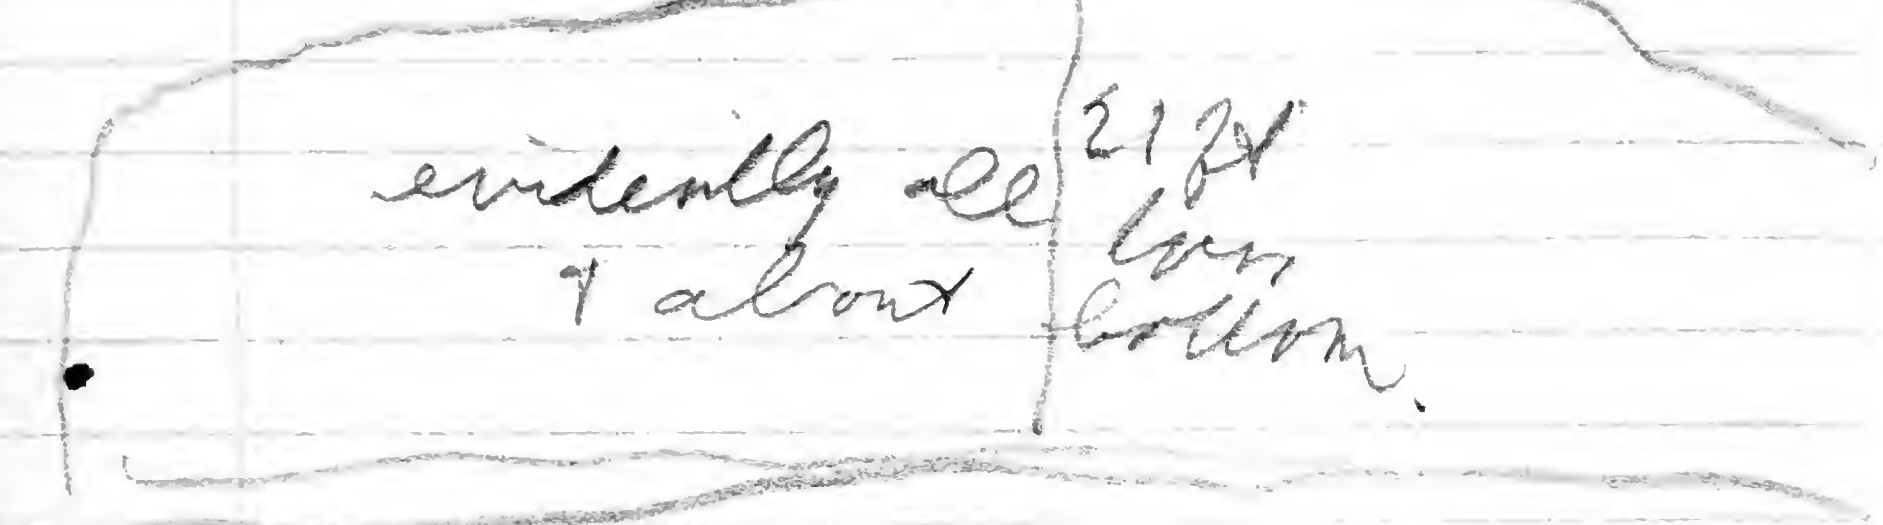 evidently all
& about
21 ft
from
bottom.